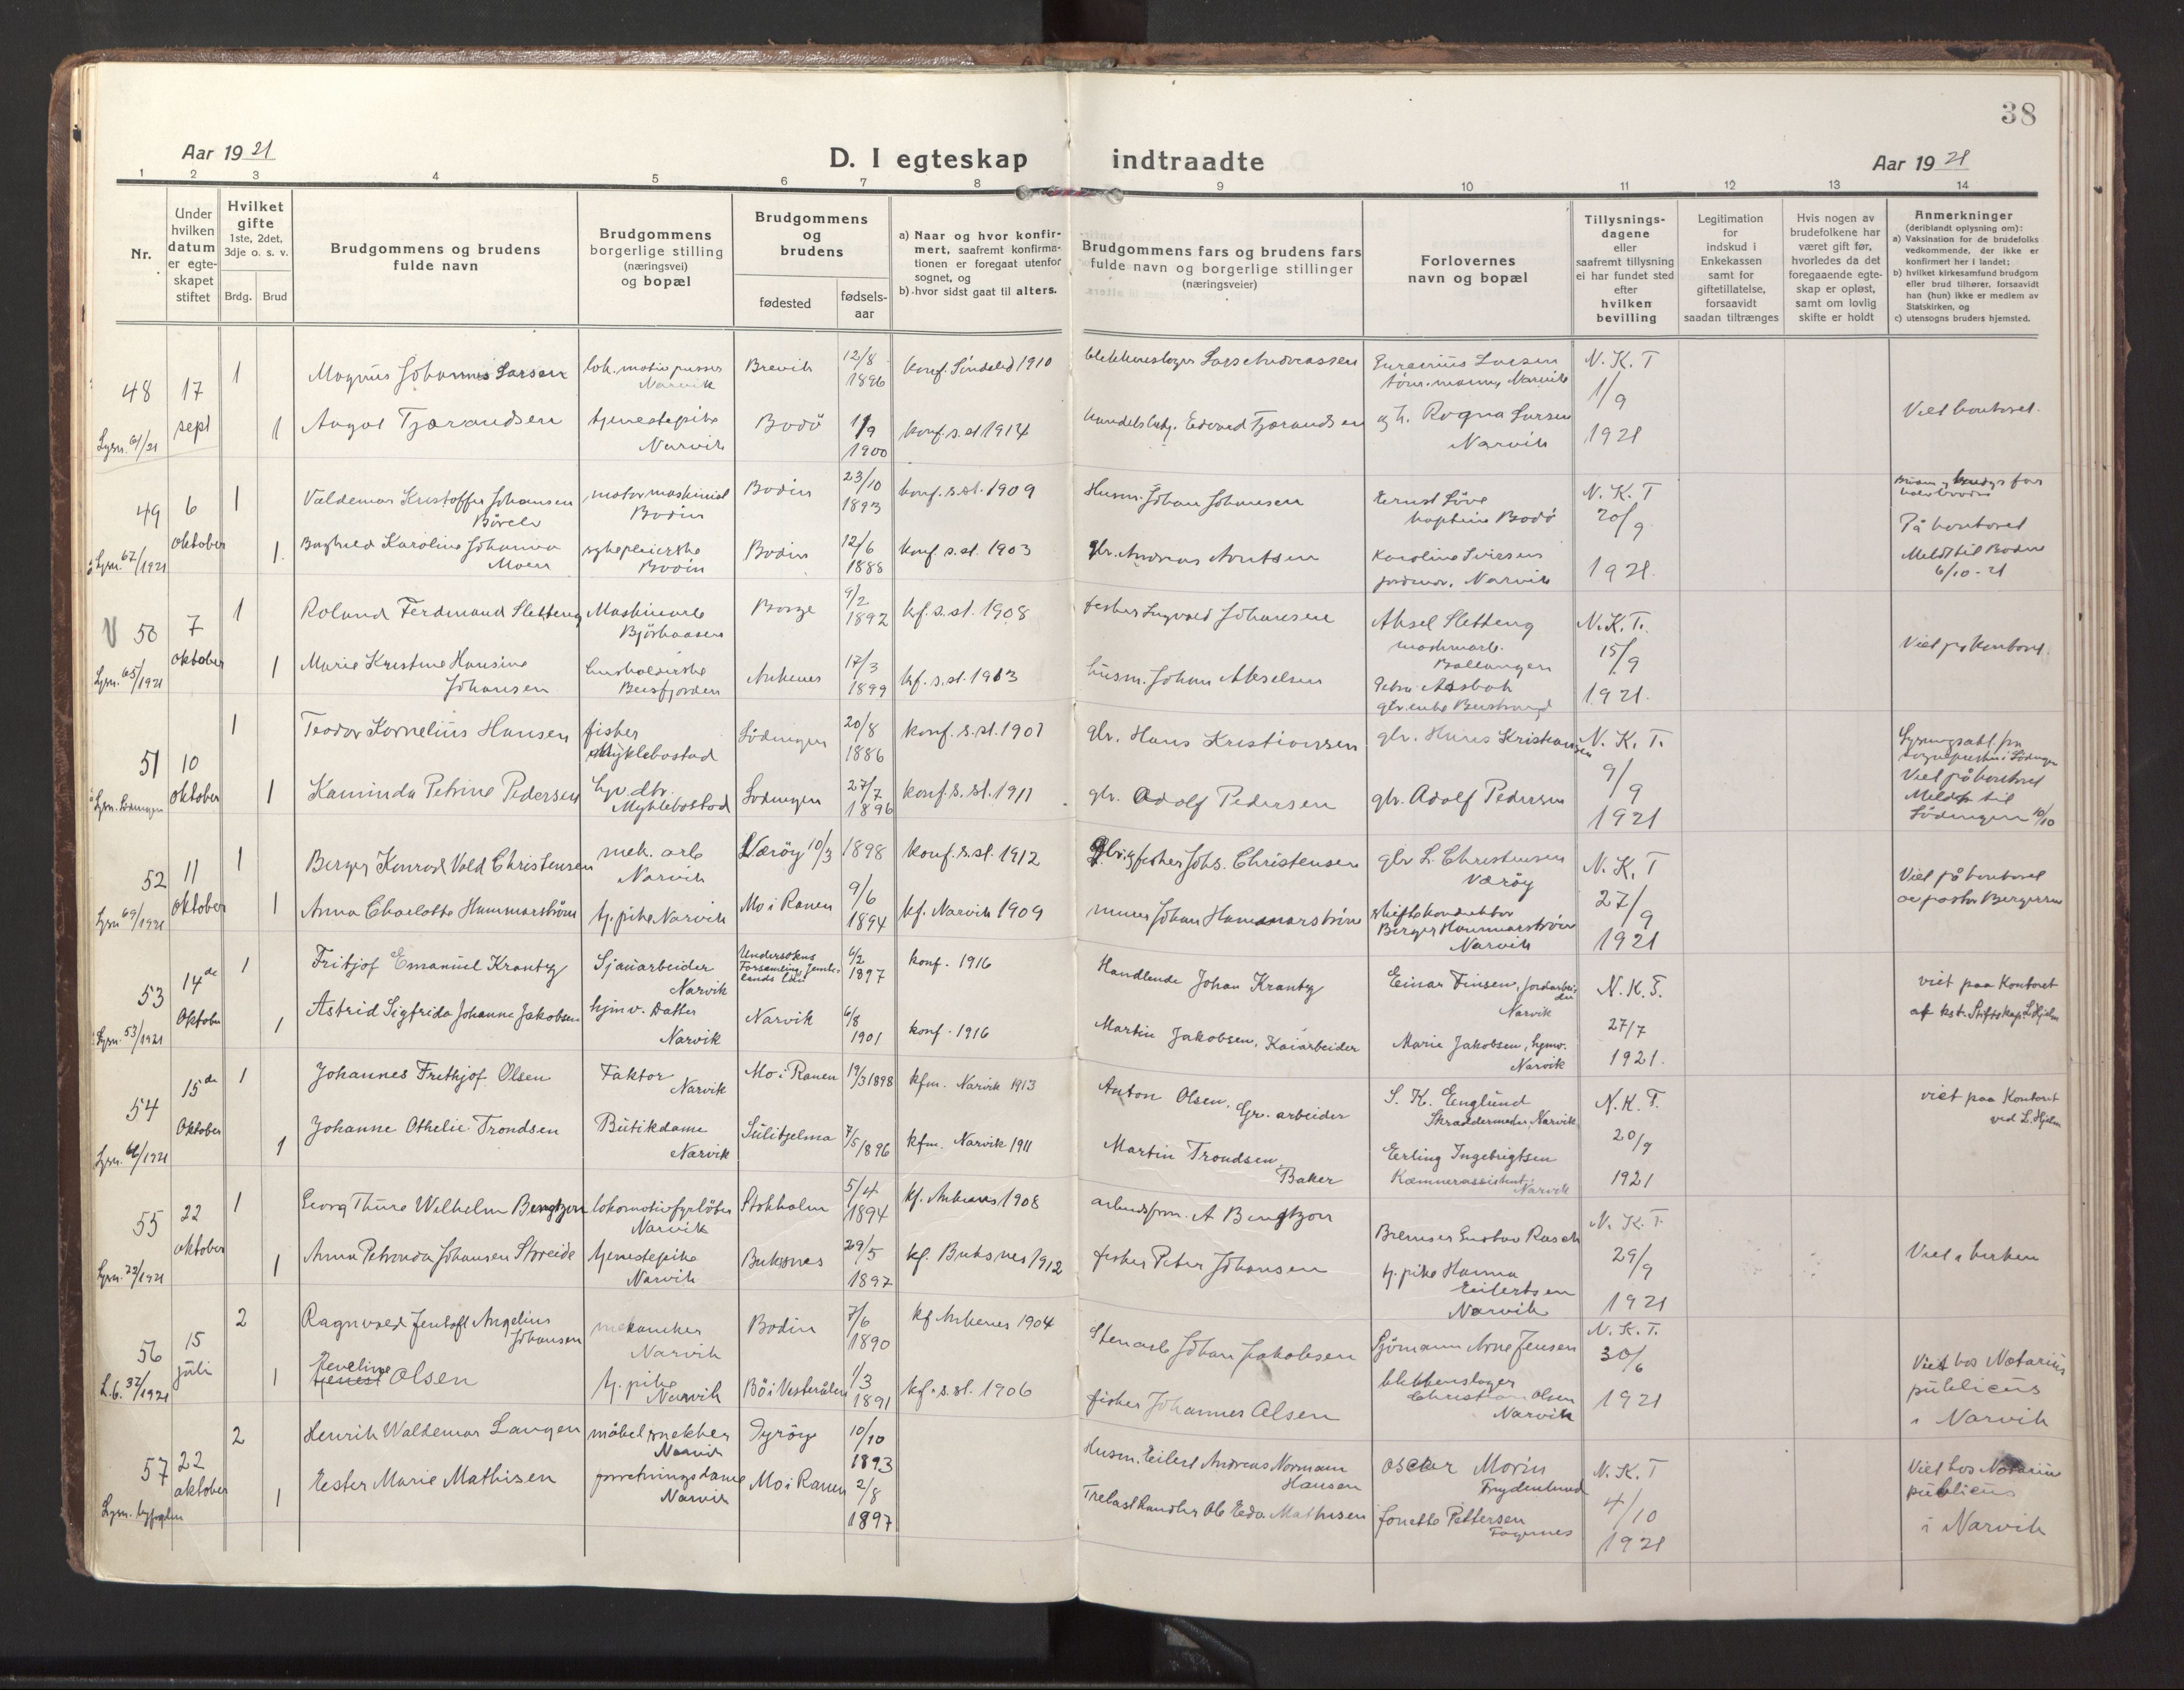 38
Aar 1921
D. I egteskap indtraadte
Aar 1921
1 2 3 4 5 6 7 8 9 10 11 12 13 14
Nr.
Under hvilken datum er egte-skapet stiftet
Hvilket gifte
1ste, 2det, 3dje o. s. v.
Brdg. Brud
Brudgommens og brudens fulde navn
Brudgommens borgerlige stilling (næringsvei) og bopæl
Brudgommens og brudens
fødested
fødsels-aar
a) Naar og hvor konfir-mert, saafremt konfirma-tionen er foregaat utenfor sognet, og
b) hvor sidst gaat til alters.
Brudgommens fars og brudens fars fulde navn og borgerlige stillinger (næringsveier)
Forlovernes navn og bopæl
Tillysnings-dagene eller saafremt tillysning ei har fundet sted efter hvilken bevilling
Legitimation for indskud i Enkekassen samt for giftetillatelse, forsaavidt saadan tiltrænges
Hvis nogen av brudefolkene har været gift før, hvorledes da det foregaaende egte-skap er opløst, samt om lovlig skifte er holdt
Anmerkninger
(deriblandt oplysning om):
a) Vaksination for de brudefolks vedkommende, der ikke er konfirmert her i landet;
b) hvilket kirkesamfund brudgom eller brud tilhører, forsaavidt han (hun) ikke er medlem av Statskirken, og
c) utensogns bruders hjemsted.
48 17 sept 1 Magnus Johannes Larsen lok. motiv pusser Narvik Brevik 12/8 1896 konf. Söndeled 1910 blikkenslager Lars Andreassen Larsen Narvik N. K. T 1/9 1921
Lysn. 61/21 1 Aagot Tjærandsen tjenestepike Narvik Bodö 1/9 1900 konf. s. st 1914 Edvard Tjærandsen Ragna Larsen Narvik Viet kontoret.
49 6 oktober 1 Valdemar Kristoffer Johansen motormaskinist Bodin Bodin 23/10 1893 konf. s. st. 1909 Husm. Johan Johansen Bodö N. K. T 20/9 1921.
Lysn. 67/1921 1. Karoline Johanna Moen sykepleierske Bodin Bodin 12/6 1888 konf s. st. 1903 gbr. Andreas Arntsen Karoline Narvik På kontoret Meldt til Bodin 6/10-21
50 7 oktober 1 Roland Ferdinand Sletteng Maskinarb Borge 9/2 1892 kf. s. st. 1908 fisker Ingvald Johansen Aksel Sletteng Ballangen N. K. T. 15/9 1921.
Lysn. 65/1921 1 Marie Kristine Hansine Johansen husholderske Beisfjorden Ankenes 17/3 1899 kf. s. st. 1913 husm. Johan Akselsen Petra Aasbak Viet på kontoret.
51 10 oktober 1 Teodor Kornelius Hansen fisker Myklebostad Lödingen 20/8 1886 konf. s. st. 1901 gbr. Hans Kristiansen gbr. Hans Kristiansen N. K. T. 9/9 1921
Lysn. Lödingen 1 Kaminda Petrine Pedersen Myklebostad Lödingen 27/7 1896 konf. s. st. 1911 gbr. Adolf Pedersen gbr. Adolf Pedersen
Viet på kontoret Meldt til Lödingen 10/10
52 11 oktober 1 Berger Konrad Vold Christensen mek. arb Narvik Væröy 10/3 1898 konf. s. st. 1912 gbr. og fisker Johs. Christensen gbr L. Christensen Værøy N. K. T 27/9 1921
Lysn 69/1921 1 Anna Charlotte Hammarström tj. pike Narvik Mo i Ranen 9/6 1894 kf. Narvik 1909 murer Johan Hammarström skiftekonduktör Berger Hammarström Narvik Viet på kontoret av pastor Bergersen
53 14de Oktober 1 Fritjof Emanuel Krantz Sjauarbeider Narvik Undersåkers Forsamling, Jemt-lands län 6/2 1897 konf. 1916 Handlende Johan Krantz Einar Finsen, Jordarbei-der Narvik N. K. T. 27/7 1921.
Lysn. 53/1921 1 Astrid Sigfrida Johanne Jakobsen hjmv. Datter Narvik Narvik 6/8 1901 konf. 1916 Martin Jakobsen, Kaiarbeider Marie Jakobsen, hjmv. Narvik viet paa Kontoret af kst. Stiftskap. L. Hjelm
54 15de Oktober 1 Johannes Frithjof Olsen Faktor Narvik Mo i Ranen 19/3 1898 kfm. Narvik 1913 Anton Olsen, Gr. arbeider S. K. Englund Skræddermester, Narvik N. K. T. 20/9 1921
1 Johanne Othelie Trondsen Butikdame Narvik Sulitjelma 7/5 1896 kfm. Narvik 1911 Martin Trondsen Baker Erling Ingebrigtsen Kæmnerassistent Narvik viet paa Kontoret ved L. Hjelm
55 22 oktober 1 Georg Thure Wilhelm Bengtzon lokomotivfyrböter Narvik Stokholm 5/4 1894 kf. Ankenes 1908 arbeidsform. A Bengtzon Bremser Gustav Rasch N. K. T. 29/9 1921
Lysn. 72/1921 1 Anna Petronda Johansen Storeide tjenestepike Narvik Buksnes 29/5 1897 kf. Buksnes 1912 fisker Peter Johansen tj. pike Hanna Eilertsen Narvik Viet i kirken
56 15 juli 2 Ragnvald Jentoft Angelius Johansen mekaniker Narvik Bodin 7/6 1890 kf Ankenes 1904 Stenarb Johan Jakobsen Sjömann Arne Jensen N. K. T. 30/6 1921
32/1921 1 Eveline Olsen tj. pike Narvik Bö i Vesterålen 1/3 1891 kf. s. st. 1906 fisker Johannes Olsen blikkenslager Christian Olsen Narvik Viet hos Notarius publicus i Narvik
57 22 oktober 2 Henrik Waldemar Langen möbelsnekker Narvik Dyröy 10/10 1893 Husm. Eilert Andreas Normann Hansen Oscar Morin Frydenlund N. K. T 4/10 1921
1 Ester Marie Mathisen forretningsdame Narvik Mo i Ranen 2/8 1897 Trelasthandler Mathisen Jonette Pettersen Fagernes Viet hos Notarius publicus i Narvik